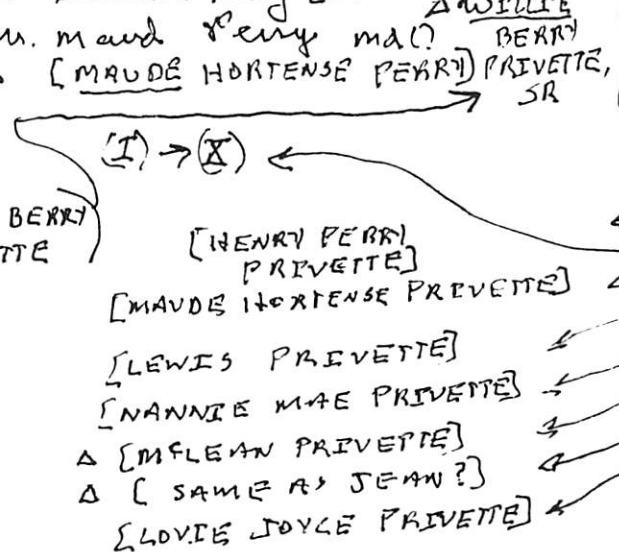 △ WILLIE
m. maud Perry md(? BERRY
[MAUDE HORTENSE PERRY] PRIVETTE,
SR
(I) → (X)
BERRY
TTE
[HENRY PERRY
PRIVETTE]
[MAUDE HORTENSE PRIVETTE]
[LEWIS PRIVETTE]
[NANNIE MAE PRIVETTE]
△ [MCLEAN PRIVETTE]
△ [SAME AS JEAN?]
[LOVIE JOYCE PRIVETTE]